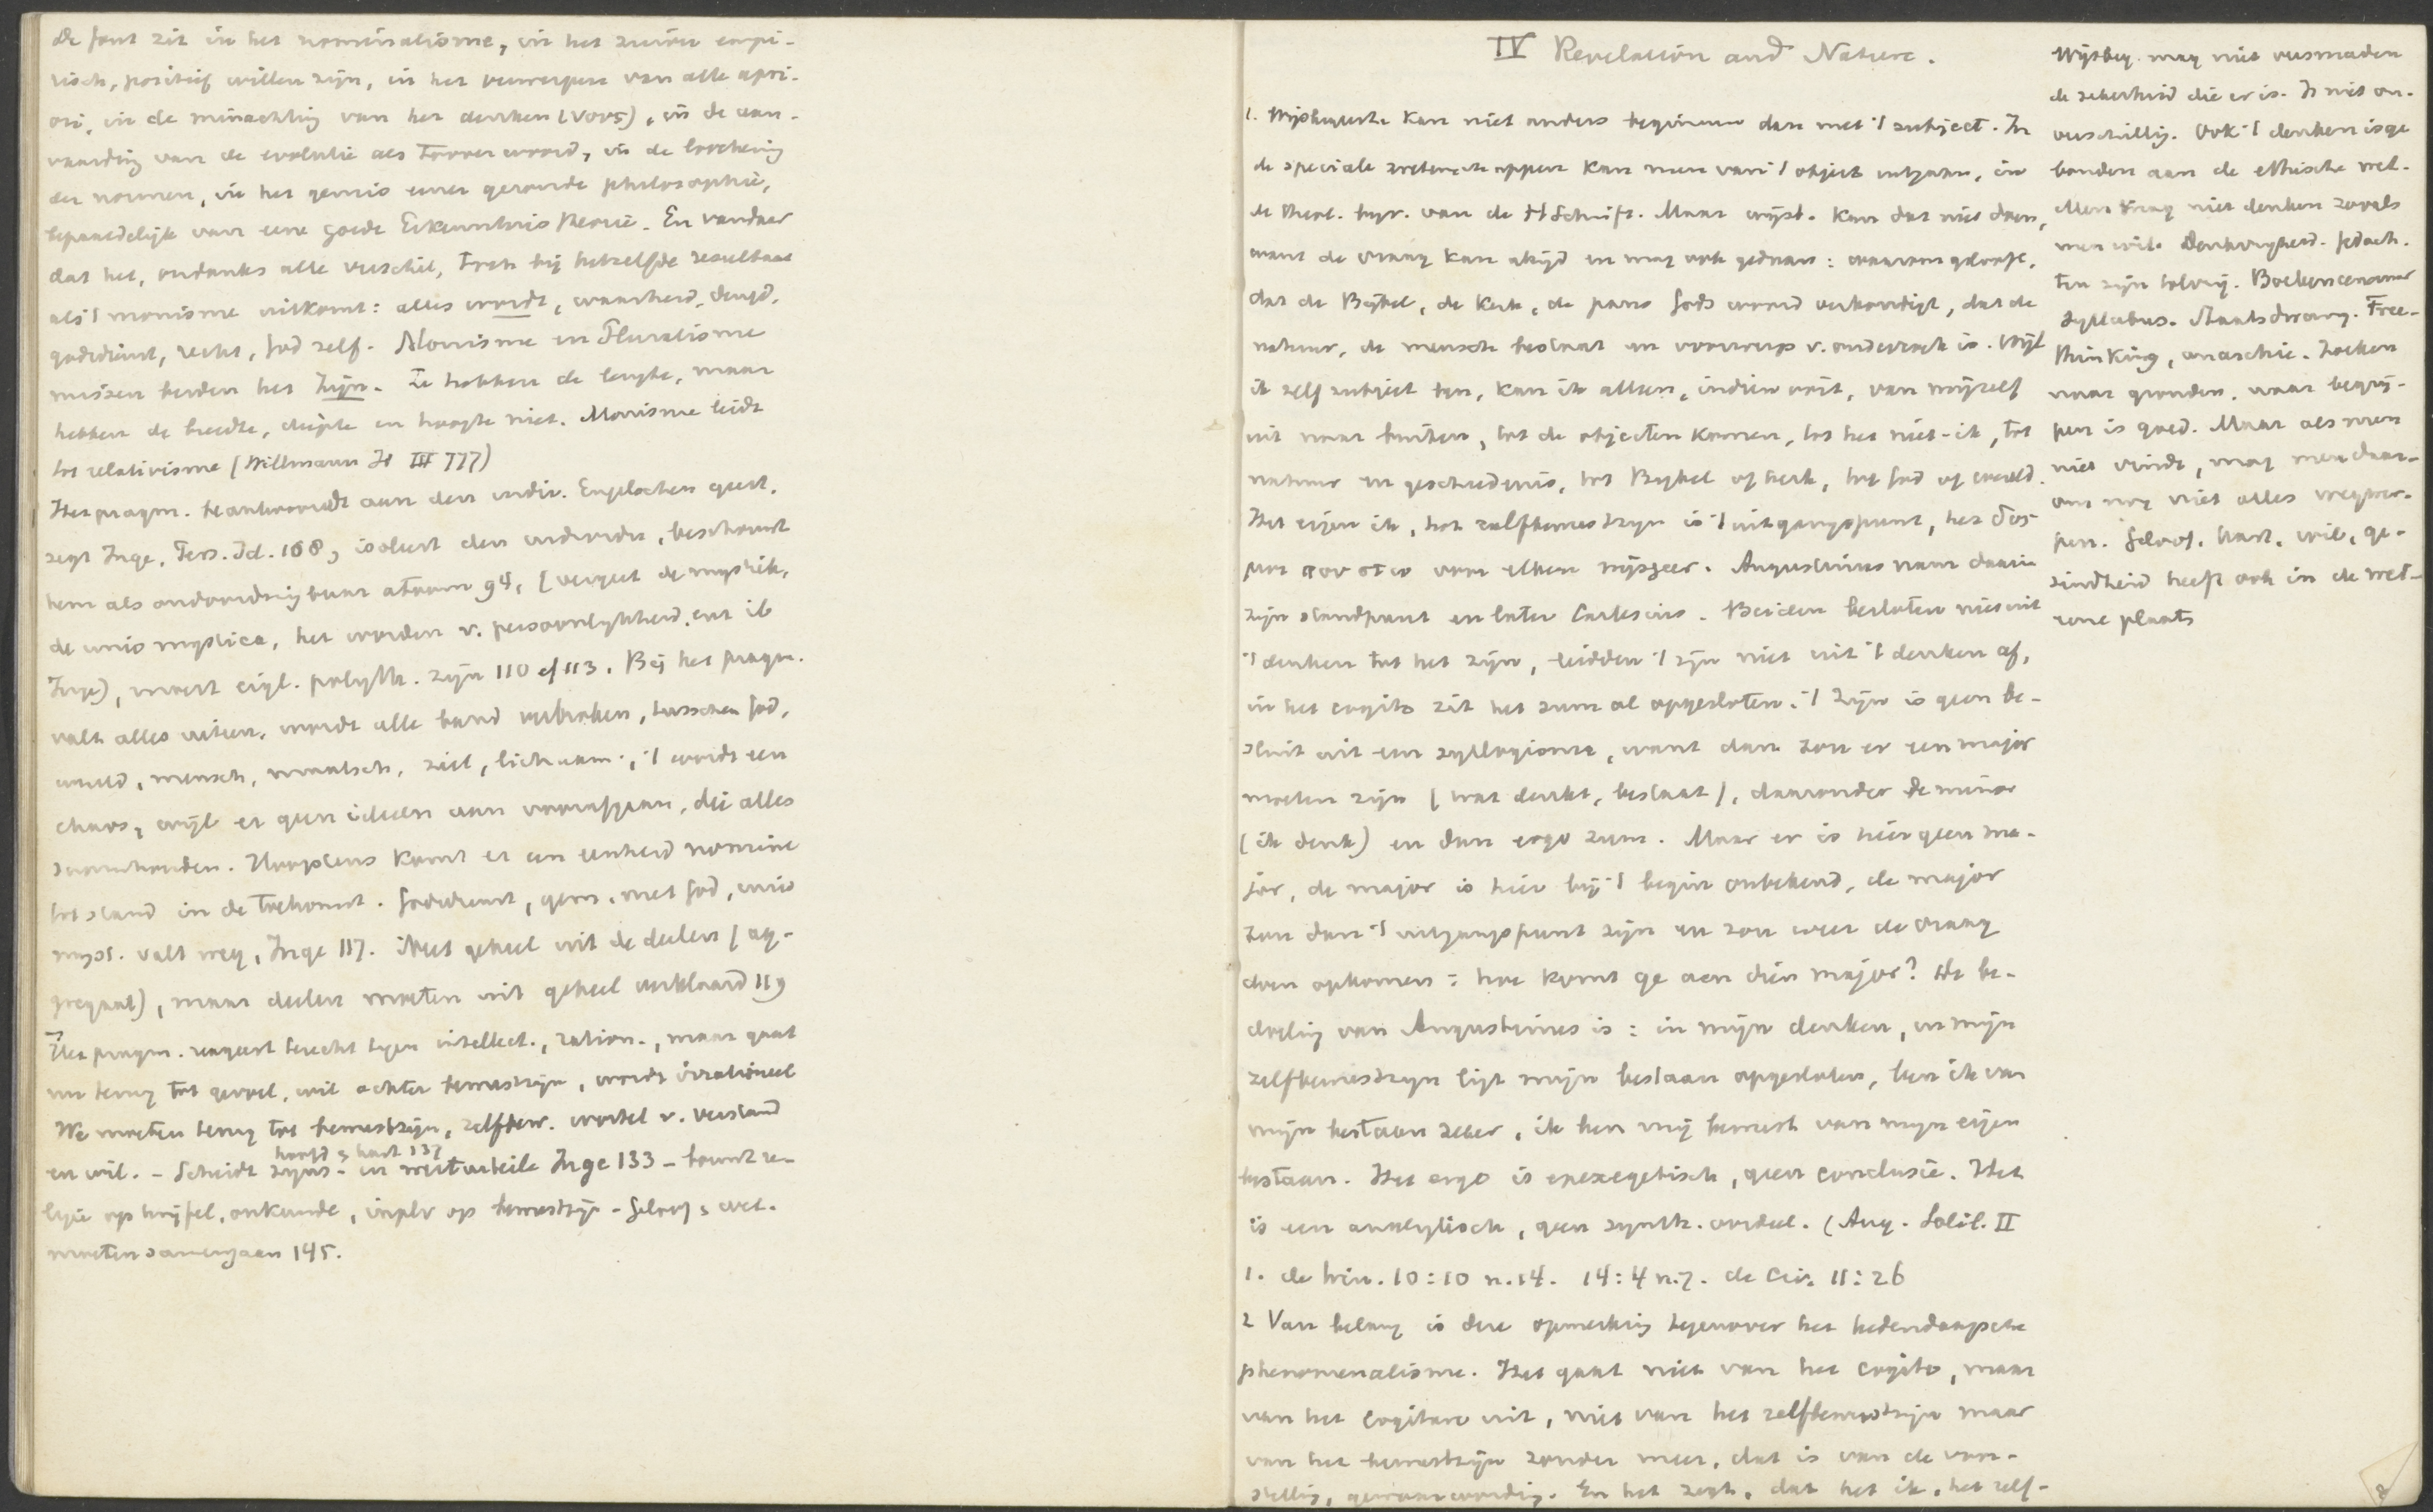 De fout zit in het nominalisme, in het zuiver empi-
risch, positief willen zijn, in het verwerpen van alle apri-
ori, in de minachting van het denken (νους), in de aan-
vaarding van de evolutie als tooverwoord, in de loochening
der normen, in het gemis eener gezonde philosophie,
bepaaldelijk van eene goede Erkenntnistheorie. En vandaar
dat het, ondanks alle verschil, toch bij hetzelfde resultaat
als 't monisme uitkomt: alles wordt, waarheid, deugd,
godsdienst, recht, God zelf. Monisme en Pluralisme
missen beiden het Zijn. Ze hebben de lengte, maar
hebben de breedte, diepte en hoogte niet. Monisme leidt
tot relativisme (Willmann Id III 777)
Het pragm. beantwoordt aan den individ. Engelschen geest,
zegt Inge, Pers. Id. 108, isoleert den individu, beschouwt
hem als ondoordringbaar atoom 94, (vergeet de mystiek,
de unio mystica, het worden v. persoonlijkheid
Inge), moest eigl. polyth. zijn 110 cf 113. Bij het pragm.
valt alles uiteen, wordt alle band verbroken, tusschen God,
wereld, mensch, maatsch, ziel, lichaam; 't wordt een
chaos, wijl er geen ideeën aan voorafgaan, die alles
saamhouden. Hoogstens komt er een eenheid nomine
tot stand in de toekomst. Godsdienst, gem. met God, unio
myst. valt weg, Inge 117. Niet geheel uit de deelen (ag-
gregaat), maar deelen moeten uit geheel verklaard 119
Het pragm. reageert terecht tegen intellect., ration., maar gaat
nu terug tot gevoel, wil achter bewustzijn, wordt irrationeel
We moeten terug tot bewustzijn, zelfbew. wortel v. verstand
hoofd & hart 137
en wil. - Scheidt zijns- en werturteile Inge 133 - bouwt re-
ligie op twijfel, onkunde, inplv op bewustzijn - Geloof & wet.
moeten samengaan 145.
IV Revelation and Nature.
1. Wijsbegeerte kan niet anders beginnen dan met 't subject. In
de speciale wetenschappen kan men van 't object uitgaan, in
de theol. bijv. van de H Schrift. Maar wijsb. kan dat niet doen,
want de vraag kan altijd en mag ook gedaan: waarom gelooft ge,
dat de Bijbel, de Kerk, de paus Gods woord verkondigt, dat de
natuur, de mensch bestaat en voorwerp v. onderzoek is. Wijl
ik zelf subject ben, kan ik alleen, indien ooit, van mijzelf
uit naar buiten, tot de objecten komen, tot het niet-ik, tot
natuur en geschiedenis, tot Bijbel of kerk, tot God of wereld.
Het eigen ik, het zelfbewustzijn is 't uitgangspunt, het δος
μοι που στω van elken wijsgeer. Augustinus nam daarin
zijn standpunt en later Cartesius. Beiden besloten niet uit
't denken tot het zijn, leidden 't zijn niet uit 't denken af,
in het cogito zit het sum al opgesloten. 't Zijn is geen be-
sluit uit een syllogisme, want dan zou er een major
moeten zijn (wat denkt, bestaat), daaronder de minor
(ik denk) en dan ergo sum. Maar er is hier geen ma-
jor, de major is hier bij 't begin onbekend, de major
zou dan 't uitgangspunt zijn en zou weer de vraag
doen opkomen: hoe komt ge aan dien major? De be-
doeling van Augustinus is: in mijn denken, in mijn
zelfbewustzijn ligt mijn bestaan opgesloten, ben ik van
mijn bestaan zeker, ik ben mij bewust van mijn eigen
bestaan. Het ergo is epexegetisch, geen conclusie. Het
is een analytisch, geen synth. oordeel. (Aug. Solil. II
1. de trin. 10:10 n.14. 14:4 n.7. de Civ. 11:26
2 Van belang is deze opmerking tegenover het hedendaagsche
phenomenalisme. Het gaat niet van het cogito, maar
van het cogitare uit, niet van het zelfbewustzijn maar
van het bewustzijn zonder meer, dat is van de voor-
stelling, gewaarwording. En het zegt, dat het ik, het zelf-
Wijsbeg. mag niet versmaden
de zekerheid die er is. Is niet on-
verschillig. Ook 't denken is ge
bonden aan de ethische wet.
Men mag niet denken zooals
men wil. Denkvrijheid. Gedach-
ten zijn tolvrij. Boekencensuur
Syllabus. Staatsdwang. Free-
thinking, anarchie. Zoeken
naar gronden, naar begrij-
pen is goed. Maar als men
niet vindt, mag men daar-
om nog niet alles wegwer-
pen. Geloof, hart, wil, ge-
zindheid heeft ook in de wet-
eene plaats